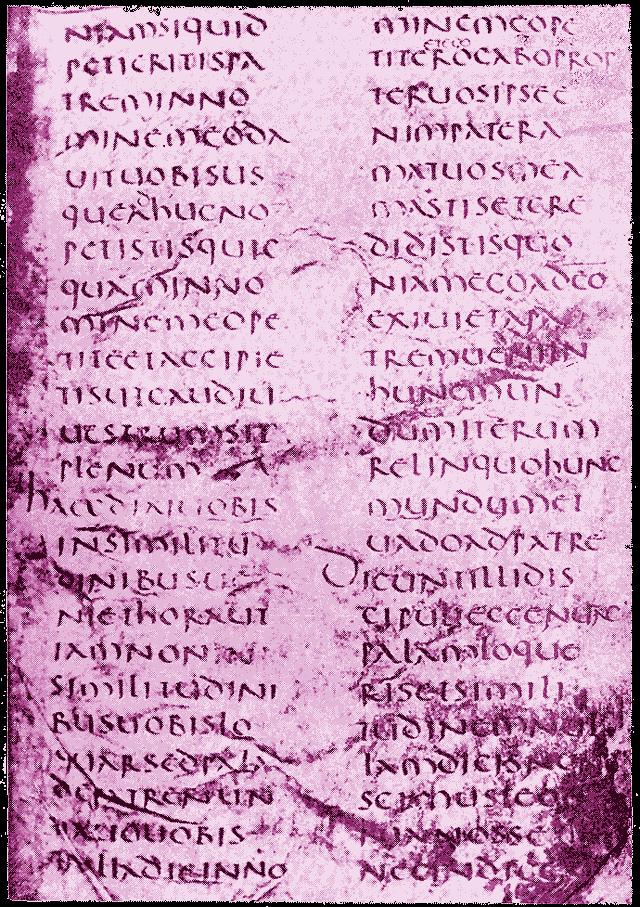 NIAMSIQUID
PETIERITISPA
TREMINNO
MINEMEODA
UITUOBISUS
QUEADHUCNO
PETISTISQUIC
QUAMINNO
MINEMEOPE
TITEETACCIPIE
TISUTGAUDIU
UESTRUMSIT
PLENUM
HAECDIXIUOBIS
INSIMILITU
DINIBUS
NIETHORAUT
IAMNON
SIMILITUDINI
BUSUOBISLO
QUARSEDPALA
UOBIS
INILLADIEINNO
MINEMEOPE
TITEETEGOROCABOPROP
TERUOSIPSEE
NIMPATERA
MATUOSMEA
MASTISETCRE
DIDISTISQUO
NIAMEGOADEO
EXIUIETAPA
TREMUENIIN
HUNCMUN
DUMITERUM
RELINQUOHUNC
MUNDUMET
UADOADPATRE
DICUNTILLIDIS
CIPULIECCENUNC
PALAMLOQUE
RISETSIMILI
TUDINEMNUL
LAMDICISNC